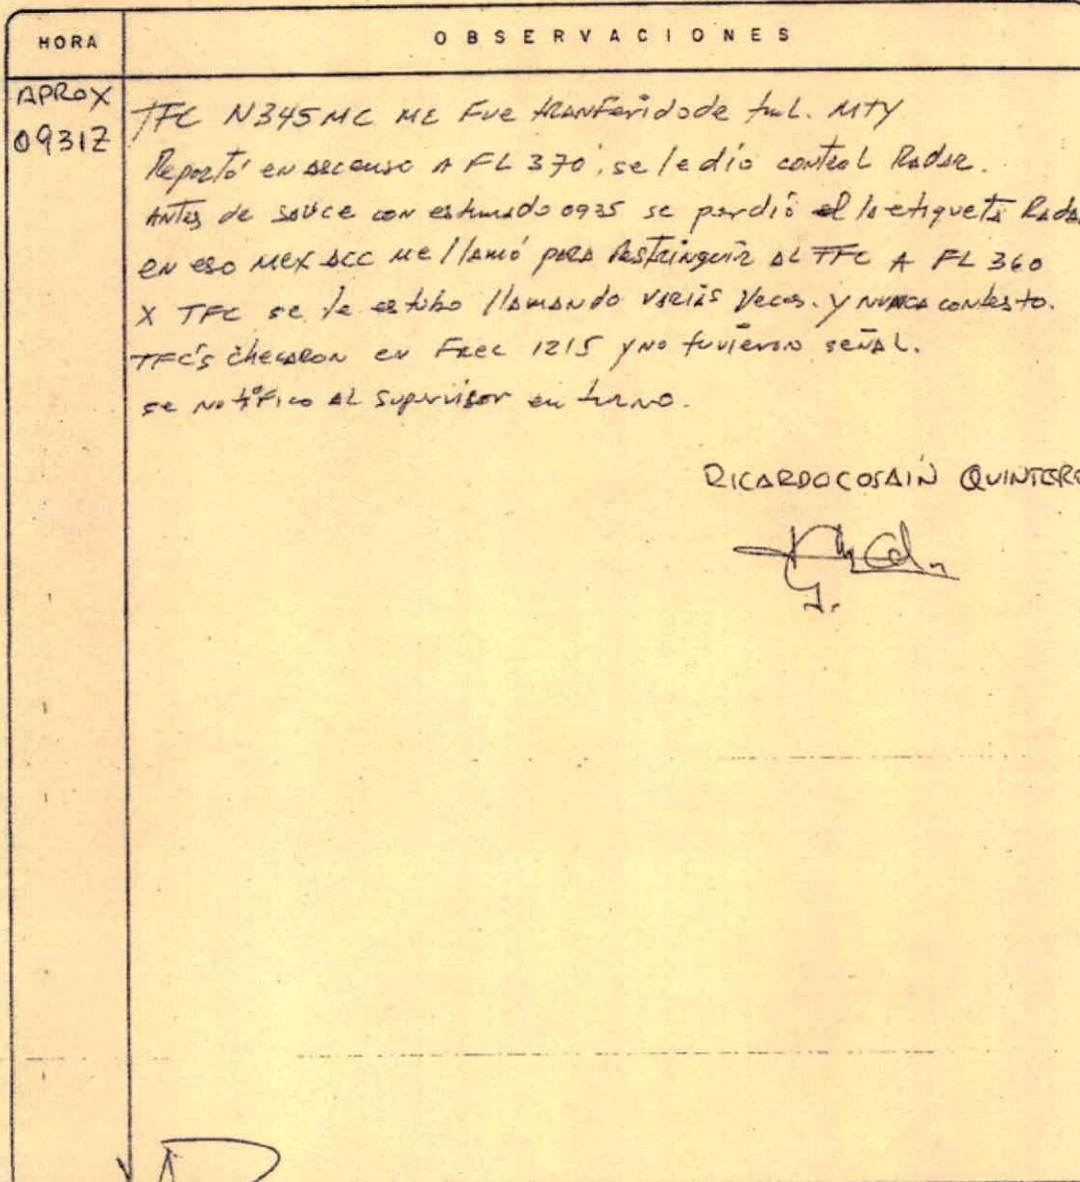 HORA
OBSERVACIONES
APROX
0931Z
TFC N345MC ME Fue tranferido de tml. MTY
Reportó en ascenso A FL 370, se le dio control Radar.
Antes de sauce con estimado 0935 se perdió el la etiqueta Radar
en eso MEX ACC me llamó para Restringuir al TFC A FL 360
X TFC se le estubo llamando varias veces. y nunca contesto.
TFC's checaron en Frec 1215 y no tuvieron señal.
se notifico al supervisor en turno.
RICARDO COSAIN QUINTERO